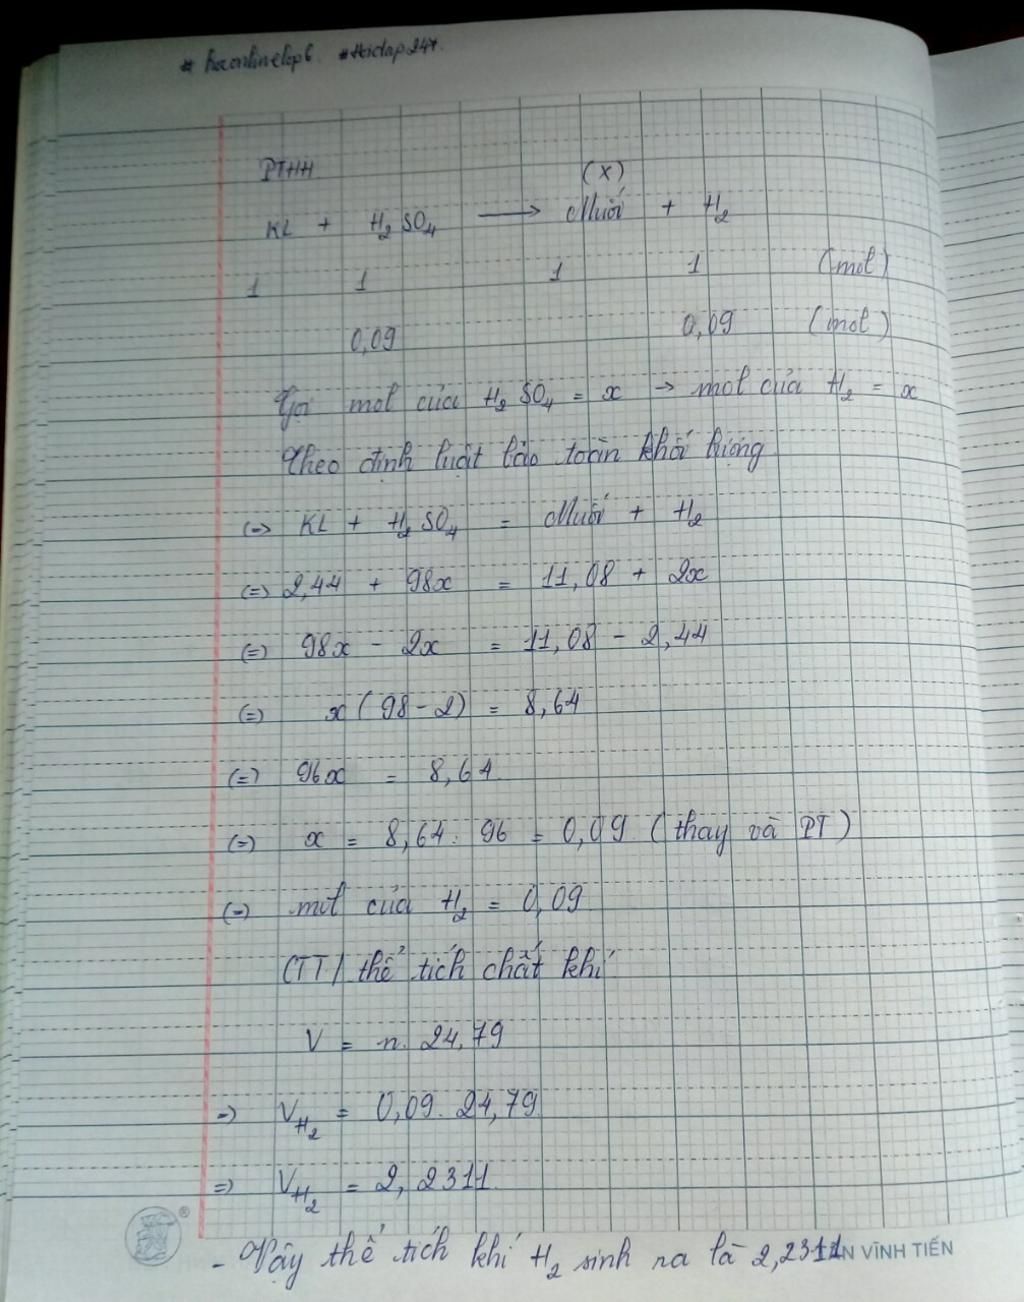 # hoconlinelop6. #Hoclop247.
PTHH (X)
KL + H₂SO₄ → Muối + H₂
1 1 1 1 (mol)
0,09 0,09 (mol)
Gọi mol của H₂SO₄ = x → mol của H₂ = x
Theo định luật bảo toàn khối lượng
(=> KL + H₂SO₄ = Muối + H₂
(=) 2,44 + 98x = 11,08 + 2x
(=) 98x - 2x = 11,08 - 2,44
(=) x (98 - 2) = 8,64
(=) 96x = 8,64
(=) x = 8,64 : 96 = 0,09 (thay và PT)
(=) mol của H₂ = 0,09
CTT/ thể tích chất khí
V = n. 24,79
=> V H₂ = 0,09. 24,79
=> V H₂ = 2,2311
- Vậy thể tích khí H₂ sinh ra là 2,2311
VĨNH TIẾN